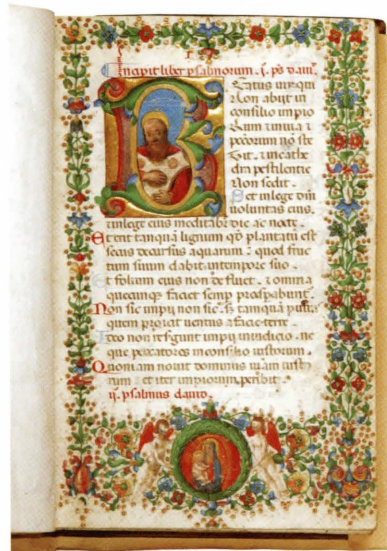 Incipit liber psalmorum. i. ps david.
Beatus vir qui
non abijt in
consilio impio
rum et in via
peccatorum nõ ste
tit. et in cathe
dra pestilentie
non sedit.
in lege dñi
voluntas eius.
in lege eius meditabit die ac nocte.
Et erit tanquã lignum qđ plantatũ est
secus decursus aquarum: quod fruc
tum suum dabit in tempore suo.
Et folium eius non defluet. et omnia
quecunqз faciet semp prosperabuntˀ.
Non sic impij non sic. sз tanquã puluis
quem proicit ventus a facie terre.
Ideo non resurgunt impij in iudicio. ne
que peccatores in consilio iustorum.
Quoniam novit dominus viam iusto
rum et iter impiorum peribit.
ij. psalmus david.